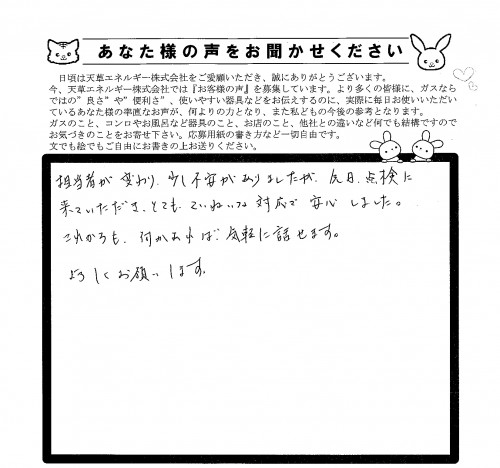 あなた様の声をお聞かせください
日頃は天草エネルギー株式会社をご愛顧いただき、誠にありがとうございます。
今、天草エネルギー株式会社では『お客様の声』を募集しています。より多くの皆様に、ガスなら
ではの”良さ”や”便利さ”、使いやすい器具などをお伝えするのに、実際に毎日お使いいただい
ているあなた様の率直なお声が、何よりの力となり、また私どもの今後の参考となります。
ガスのこと、コンロやお風呂など器具のこと、お店のこと、他社との違いなど何でも結構ですので
お気づきのことをお寄せ下さい。応募用紙の書き方など一切自由です。
文でも絵でもご自由にお書きの上お送りください。
担当者が変わり、少し不安がありましたが、先日、点検に
来ていただき、とてもていねいな対応で安心しました。
これからも、何かあれば気軽に話せます。
よろしくお願いします。